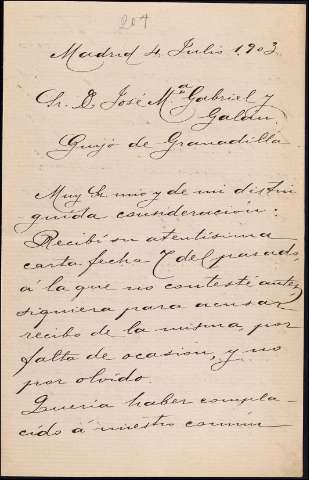 204
Madrid 4 Julio 1903
Sr. D. José Mª Gabriel y
Galán
Guijo de Granadilla
Muy Sr mio y de mi distin
guida consideración:
Recibí su atentísima
carta fecha 7 del pasado,
á la que no contesté antes
siquiera para acusar
recibo de la misma, por
falta de ocasion, y no
por olvido.
Queria haber compla-
cido á nuestro comun